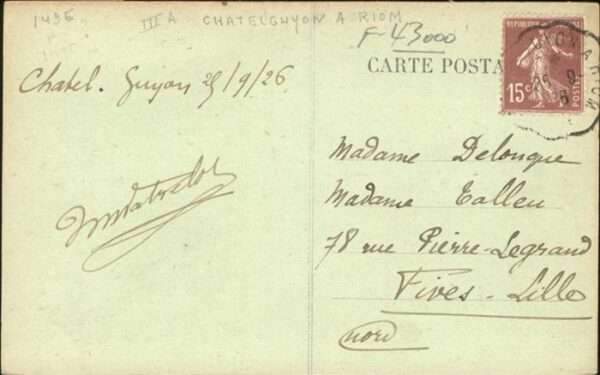 1495 III A CHATELGUYON A RIOM
F-43000
CARTE POSTA
15c
Chatel. Guyon 25/9/26
Madame Delonque
Madame Talleu
78 rue Pierre-Legrand
Fives-Lille
Nord